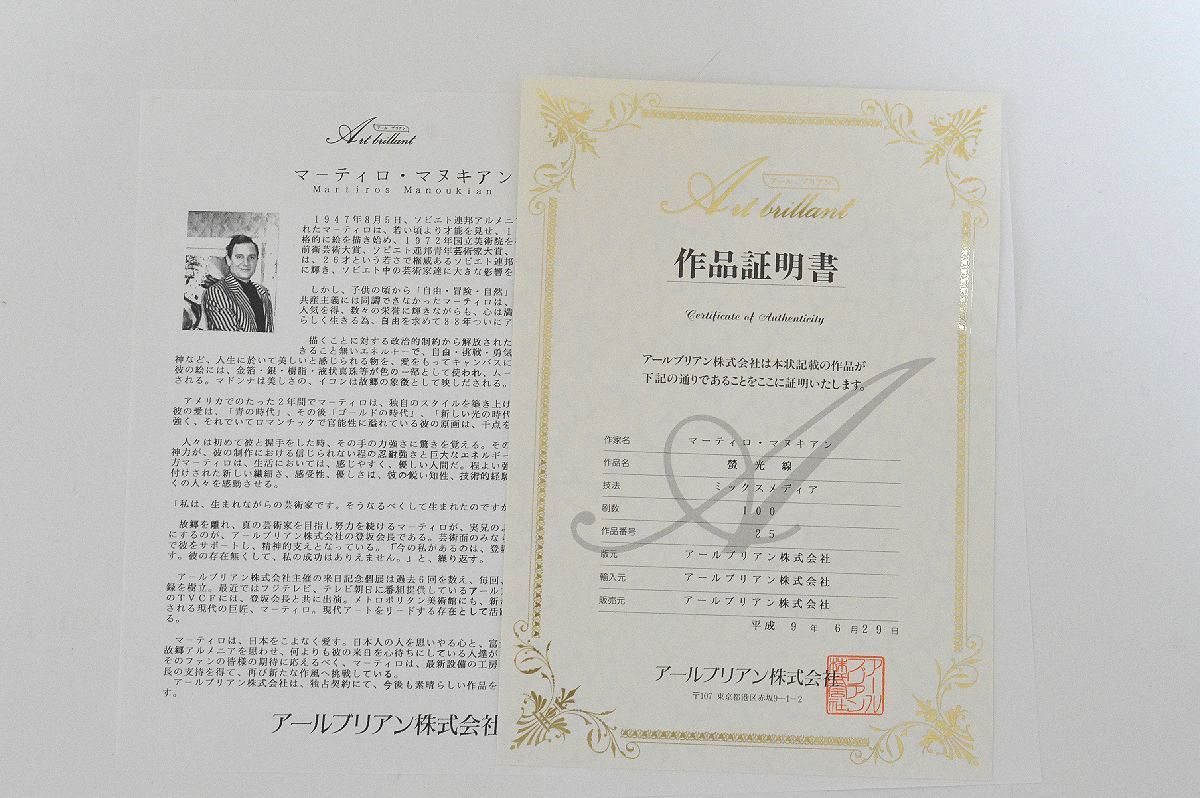 アール ブリアン
Art brillant
マーティロ・マヌキアン
Martiros Manoukian
1947年8月5日、ソビエト連邦アルメニ
れたマーティロは、若い頃より才能を見せ、1
格的に絵を描き始め、1972年国立美術院を
前衛芸術大賞、ソビエト連邦青年芸術家大賞、
は、26才という若さで権威あるソビエト連邦
に輝き、ソビエト中の芸術家達に大きな影響を
しかし、子供の頃から「自由・冒険・自然」
共産主義には同調できなかったマーティロは、
人気を得、数々の栄誉に輝きながらも、心は満
らしく生きる為、自由を求めて88年ついにア
描くことに対する政治的制約から解放された
きること無いエネルギーで、自由・挑戦・勇気
神など、人生に於いて美しいと感じられる物を、愛をもってキャンバスに
彼の絵には、金箔・銀・樹脂・液状真珠等が色の一部として使われ、ムー
される。マドンナは美しさの、イコンは故郷の象徴として映しだされる。
アメリカでのたった2年間でマーティロは、独自のスタイルを築き上げ
彼の愛は、「青の時代」、その後「ゴールドの時代」、「新しい光の時代
強く、それでいてロマンチックで官能性に溢れている彼の原画は、千点を
人々は初めて彼と握手をした時、その手の力強さに驚きを覚える。その
神力が、彼の制作における信じられない程の忍耐強さと巨大なエネルギー
方マーティロは、生活においては、感じやすく、優しい人間だ。程よい強
付けされた新しい繊細さ、感受性、優しさは、彼の鋭い知性、技術的経験
くの人々を感動させる。
「私は、生まれながらの芸術家です。そうなるべくして生まれたのですか
故郷を離れ、真の芸術家を目指し努力を続けるマーティロが、実兄のよ
にするのが、アールブリアン株式会社の登坂会長である。芸術面のみなら
で彼をサポートし、精神的支えとなっている。「今の私があるのは、登坂
す。彼の存在無くして、私の成功はありえません。」と、繰り返す。
アールブリアン株式会社主催の来日記念個展は過去6回を数え、毎回、
録を樹立。最近ではフジテレビ、テレビ朝日に番組提供しているアール
のTVCFには、登坂会長と共に出演。メトロポリタン美術館にも、新
される現代の巨匠、マーティロ。現代アートをリードする存在として活
る。
マーティロは、日本をこよなく愛す。日本人の人を思いやる心と、富
故郷アルメニアを思わせ、何よりも彼の来日を心待ちにしている人達が
そのファンの皆様の期待に応えるべく、マーティロは、最新設備の工房
長の支持を得て、再び新たな作風へ挑戦している。
アールブリアン株式会社は、独占契約にて、今後も素晴らしい作品を
す。
アールブリアン株式会社
アール・ブリアン
Art brillant
作品証明書
Certificate of Authenticity
アールブリアン株式会社は本状記載の作品が
下記の通りであることをここに証明いたします。
A
作家名 マーティロ・マヌキアン
作品名 螢光線
技法 ミックスメディア
刷数 100
作品番号 25
版元 アールブリアン株式会社
輸入元 アールブリアン株式会社
販売元 アールブリアン株式会社
平成 9 年 6 月 29 日
アールブリアン株式会社
〒107 東京都港区赤坂9-1-2
アールブリアン株式会社